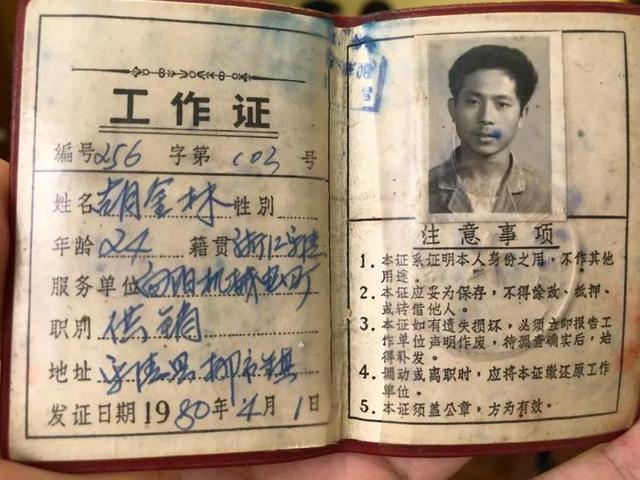 工作证
编号256字第003号
姓名胡金林性别
年龄24籍贯浙江乐清
服务单位向阳机械电器厂
职别供销
地址乐清县柳市镇
发证日期1980年4月1日
注意事项
1. 本证系证明本人身份之用，不作其他
用途。
2. 本证应妥为保存，不得涂改、抵押、
或转借他人。
3. 本证如有遗失损坏，必须立即报告工
作单位声明作废，待调查确实后，始
得补发。
4. 调动或离职时，应将本证缴还原工作
单位。
5. 本证须盖公章，方为有效。